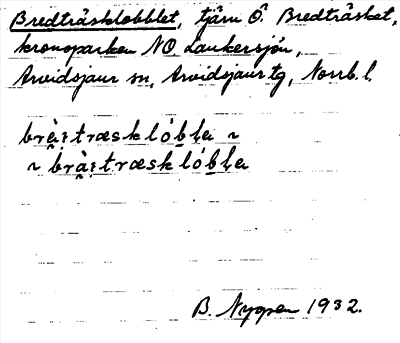 Bredträsklobblet, tjärn Ö. Bredträsket,
kronoparken NO Laukersjön,
Arvidsjaur sn, Arvidsjaur tg, Norrb. l.
brä̀i̯træsklób̥la ~
~ brä̀i̯træsklób̥la
B. Nygren 1932.